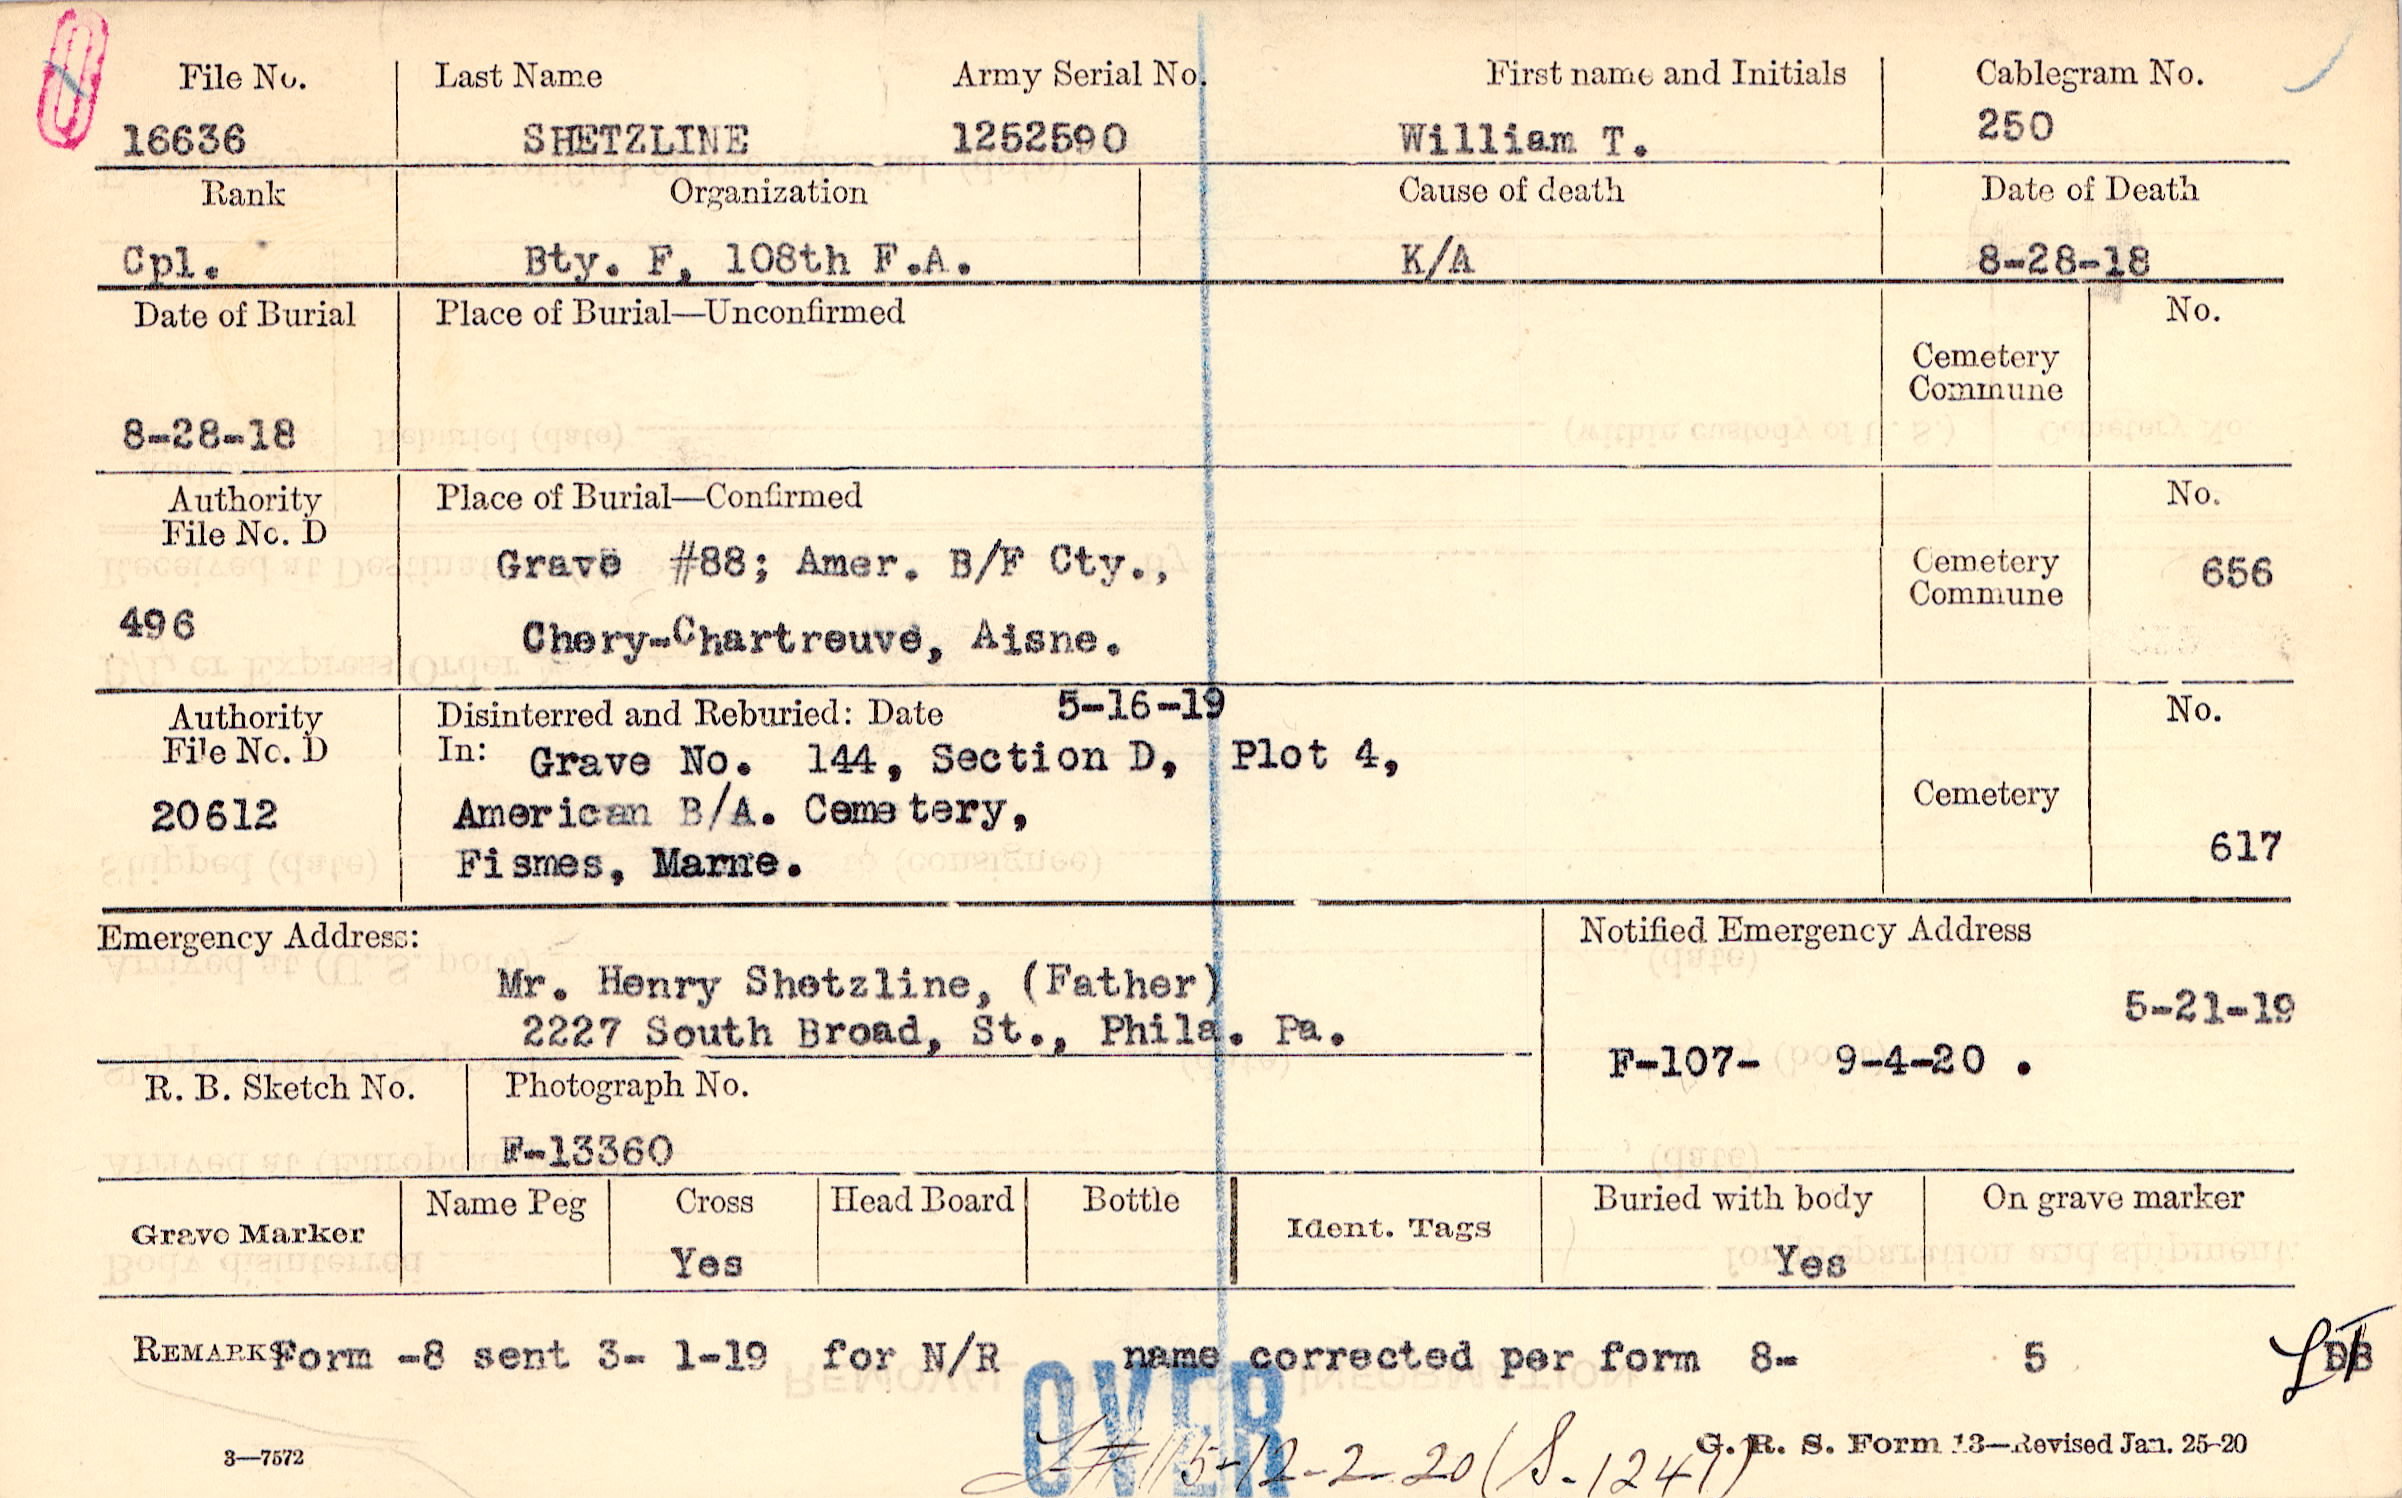 File No. Last Name Army Serial No. First name and Initials Cablegram No.
16636 SHETZLINE 1252590 William T. 250
Rank Organization Cause of death Date of Death
Cpl. Bty. F, 108th F.A. K/A 8-28-18
Date of Burial Place of Burial—Unconfirmed No.
Cemetery
Commune
8-28-18
Authority Place of Burial—Confirmed No.
File No. D
Grave #88; Amer. B/F Cty., Cemetery 656
Commune
496 Chery-Chartreuve, Aisne.
Authority Disinterred and Reburied: Date 5-16-19 No.
File No. D In: Grave No. 144, Section D, Plot 4,
20612 American B/A. Cemetery, Cemetery
Fismes, Marne. 617
Emergency Address: Notified Emergency Address
Mr. Henry Shetzline, (Father) 5-21-19
2227 South Broad, St., Phila. Pa.
F-107- 9-4-20 .
R. B. Sketch No. Photograph No.
F-13360
Grave Marker Name Peg Cross Head Board Bottle Ident. Tags Buried with body On grave marker
Yes Yes
REMARKS Form -8 sent 3- 1-19 for N/R name corrected per form 8- 5
OVER
#115-12-2-20 (S-1247)
3—7572 G. R. S. Form 13—Revised Jan. 25-20